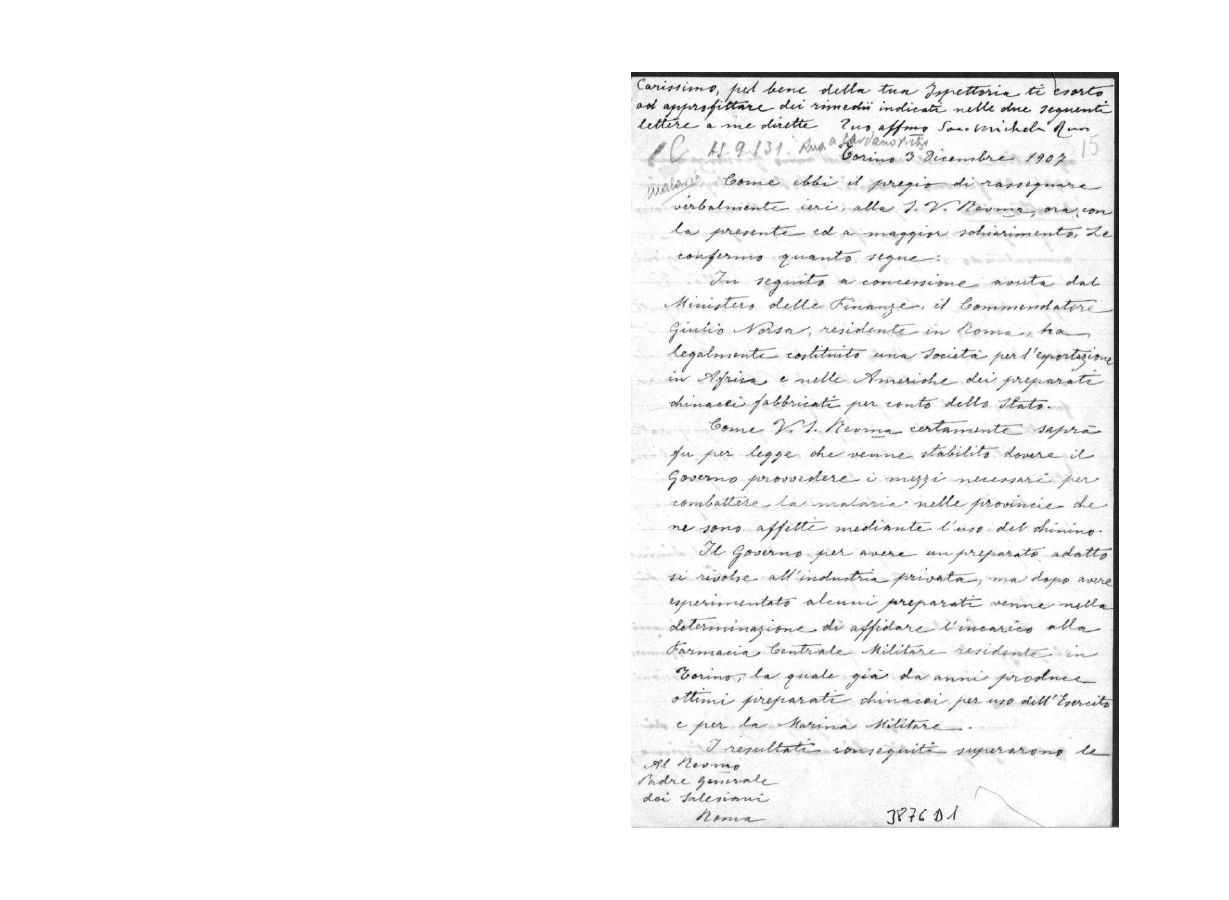 Carissimo, pel bene della tua Ispettoria ti esorto
ad approfittare dei rimedii indicati nelle due seguenti
lettere a me dirette Tuo affmo Sac. Michele Rua
AS. 9.131. Rua a
15
Torino 3 Dicembre 1907
malaria
Come ebbi il pregio di rassegnare
verbalmente ieri, alla S. V. Revma, ora, con
la presente ed a maggior schiarimento, Le
confermo quanto segue:
In seguito a concessione avuta dal
Ministero delle Finanze, il Commendatore
Giulio Norsa, residente in Roma, ha
legalmente costituito una Società per l'esportazione
in Africa e nelle Americhe dei preparati
chinacei fabbricati per conto dello Stato.
Come V. S. Revma certamente saprà
fu per legge che venne stabilito dovere il
Governo provvedere i mezzi necessari per
combattere la malaria nelle provincie che
ne sono affette mediante l'uso del chinino.
Il Governo per avere un preparato adatto
si rivolse all'industria privata, ma dopo avere
esperimentato alcuni preparati venne nella
determinazione di affidare l'incarico alla
Farmacia Centrale Militare residente in
Torino, la quale già da anni produce
ottimi preparati chinacei per uso dell'Esercito
e per la Marina Militare.
I resultati conseguiti superarono le
Al Revmo
Padre Generale
dei Salesiani
Roma
3876 D 1